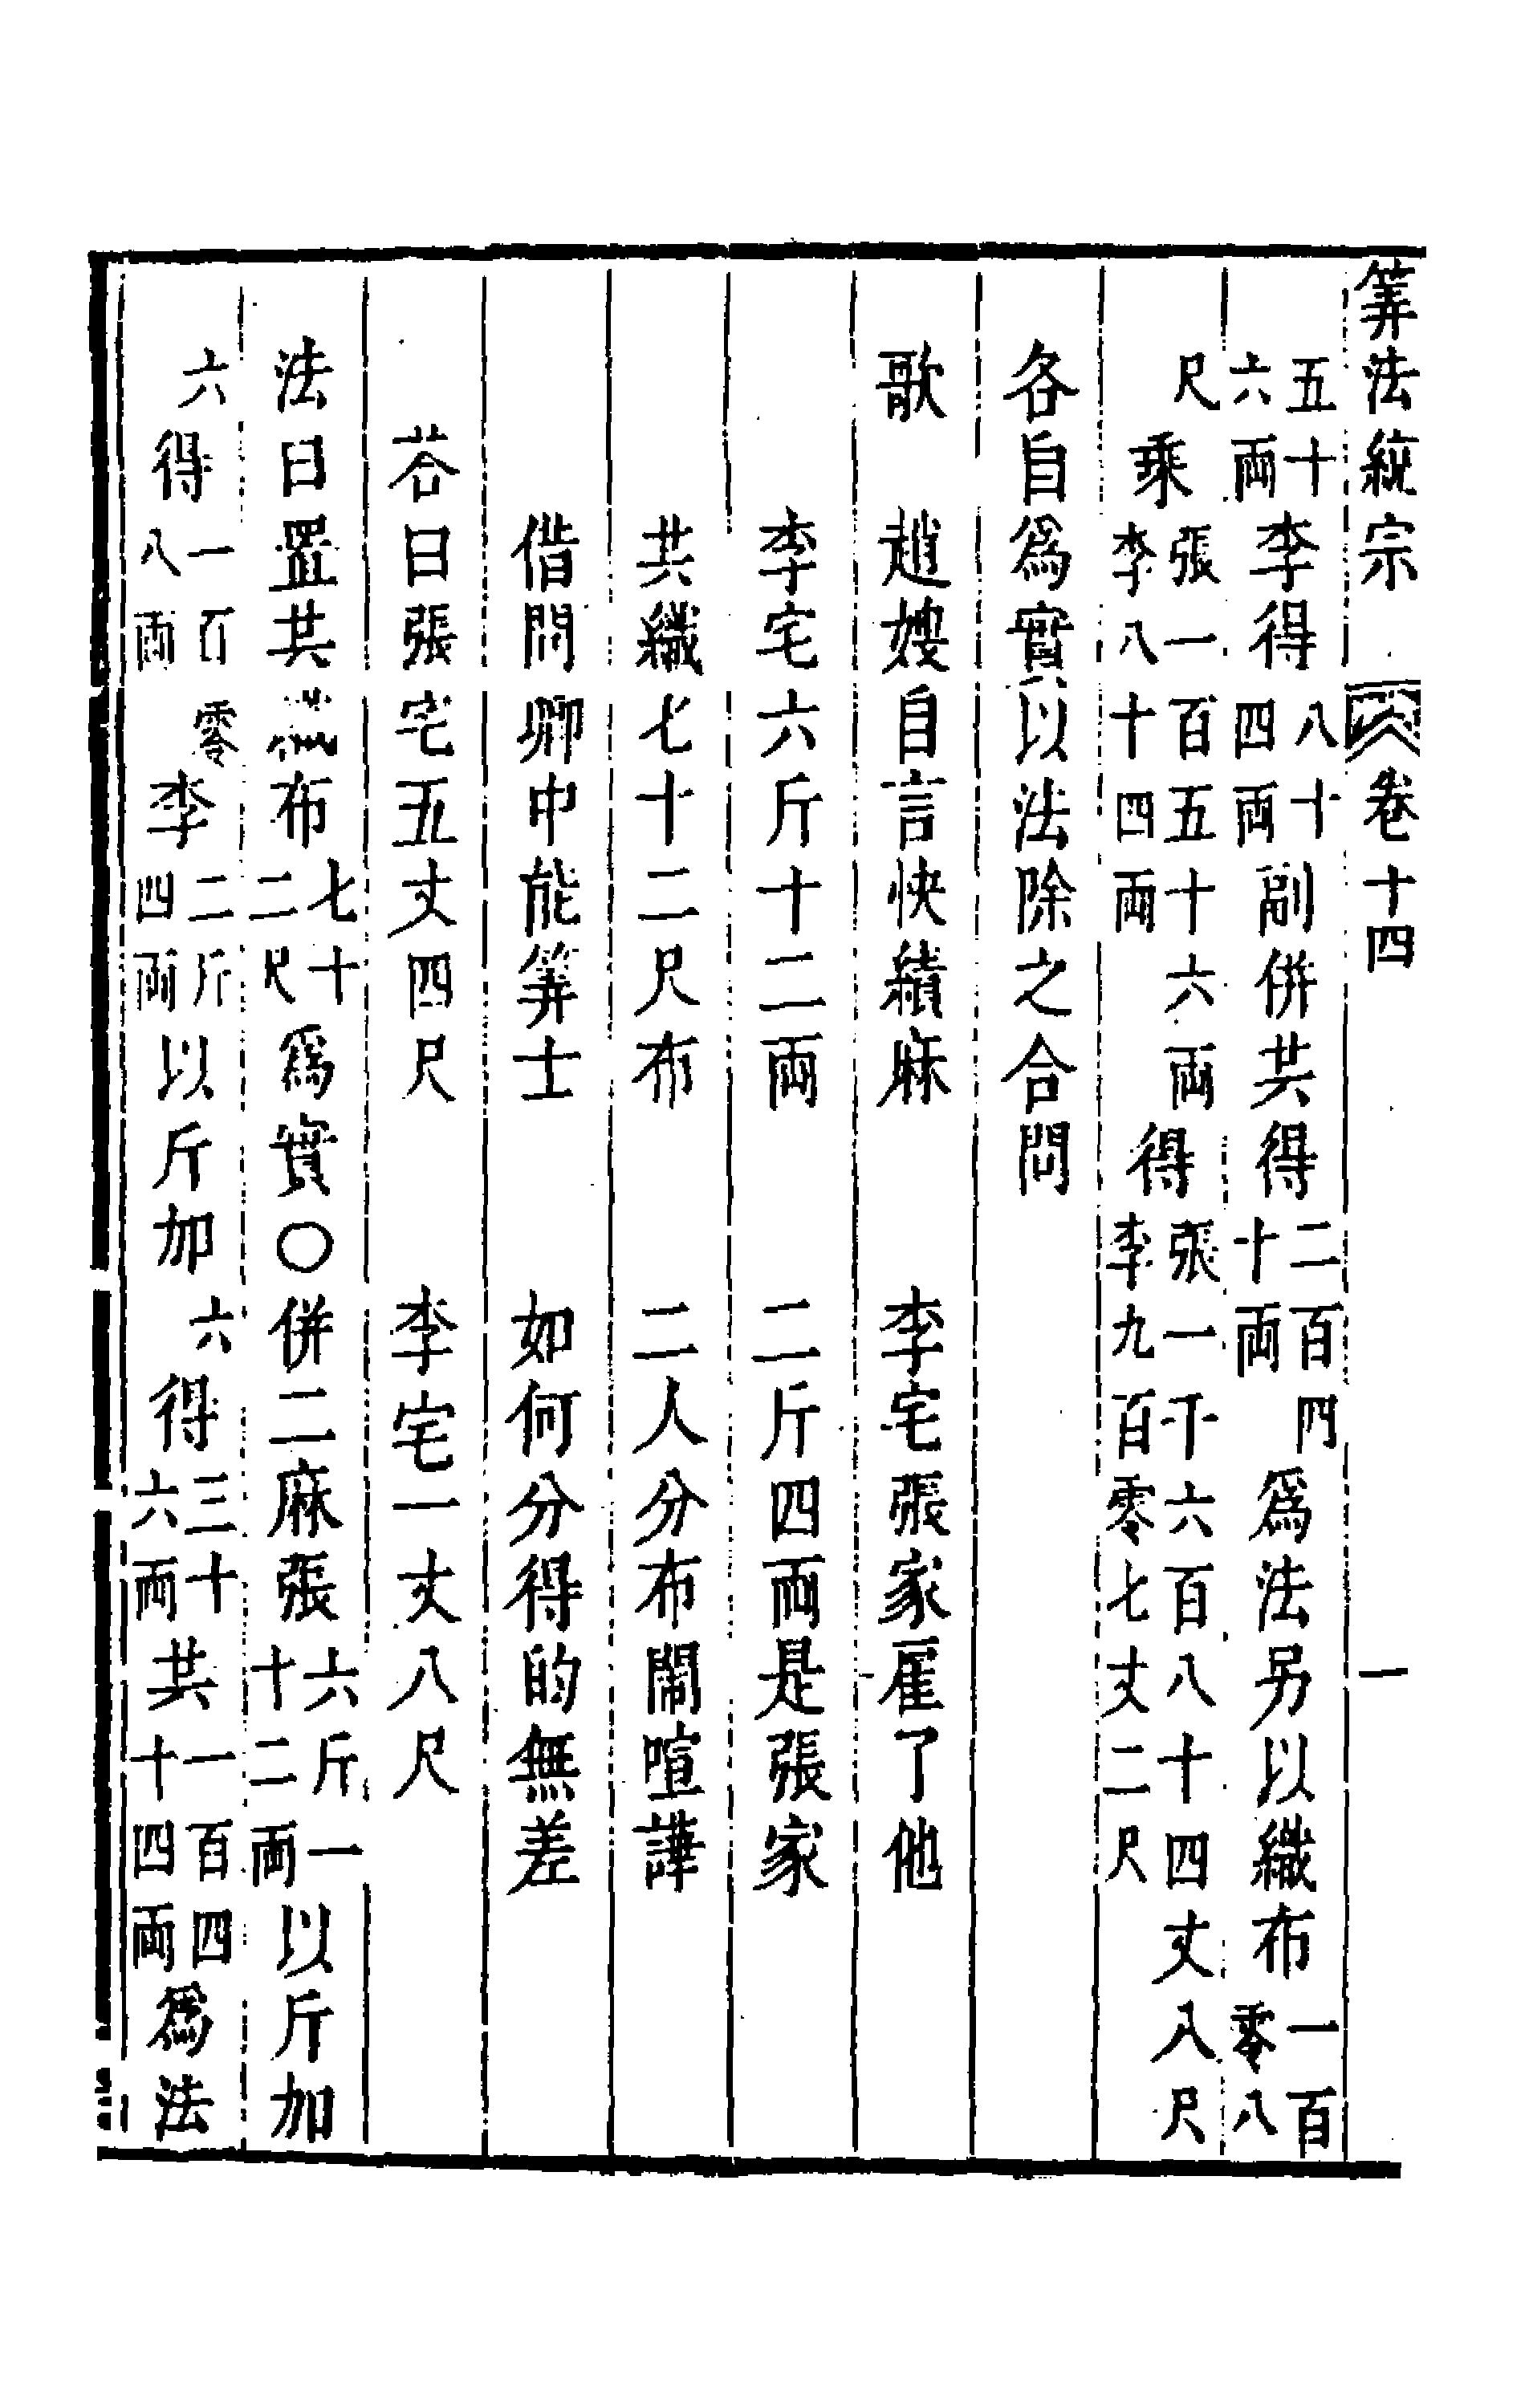 筭法統宗 卷十四 一
五十六兩李得八十四兩副併共得二百四十兩爲法另以織布一百零八
尺乘張一百五十六兩李八十四兩得張一千六百八十四丈八尺李九百零七丈二尺
各自爲實以法除之合問
歌 趙嫂自言快績麻 李宅張家雇了他
李宅六斤十二兩 二斤四兩是張家
共織七十二尺布 二人分布鬧喧譁
借問卿中能筭士 如何分得的無差
荅曰張宅五丈四尺 李宅一丈八尺
法曰置共織布七十二尺爲實○併二麻張六斤一十二兩以斤加
六得一百零八兩李二斤四兩以斤加六得三十六兩共一百四十四兩爲法